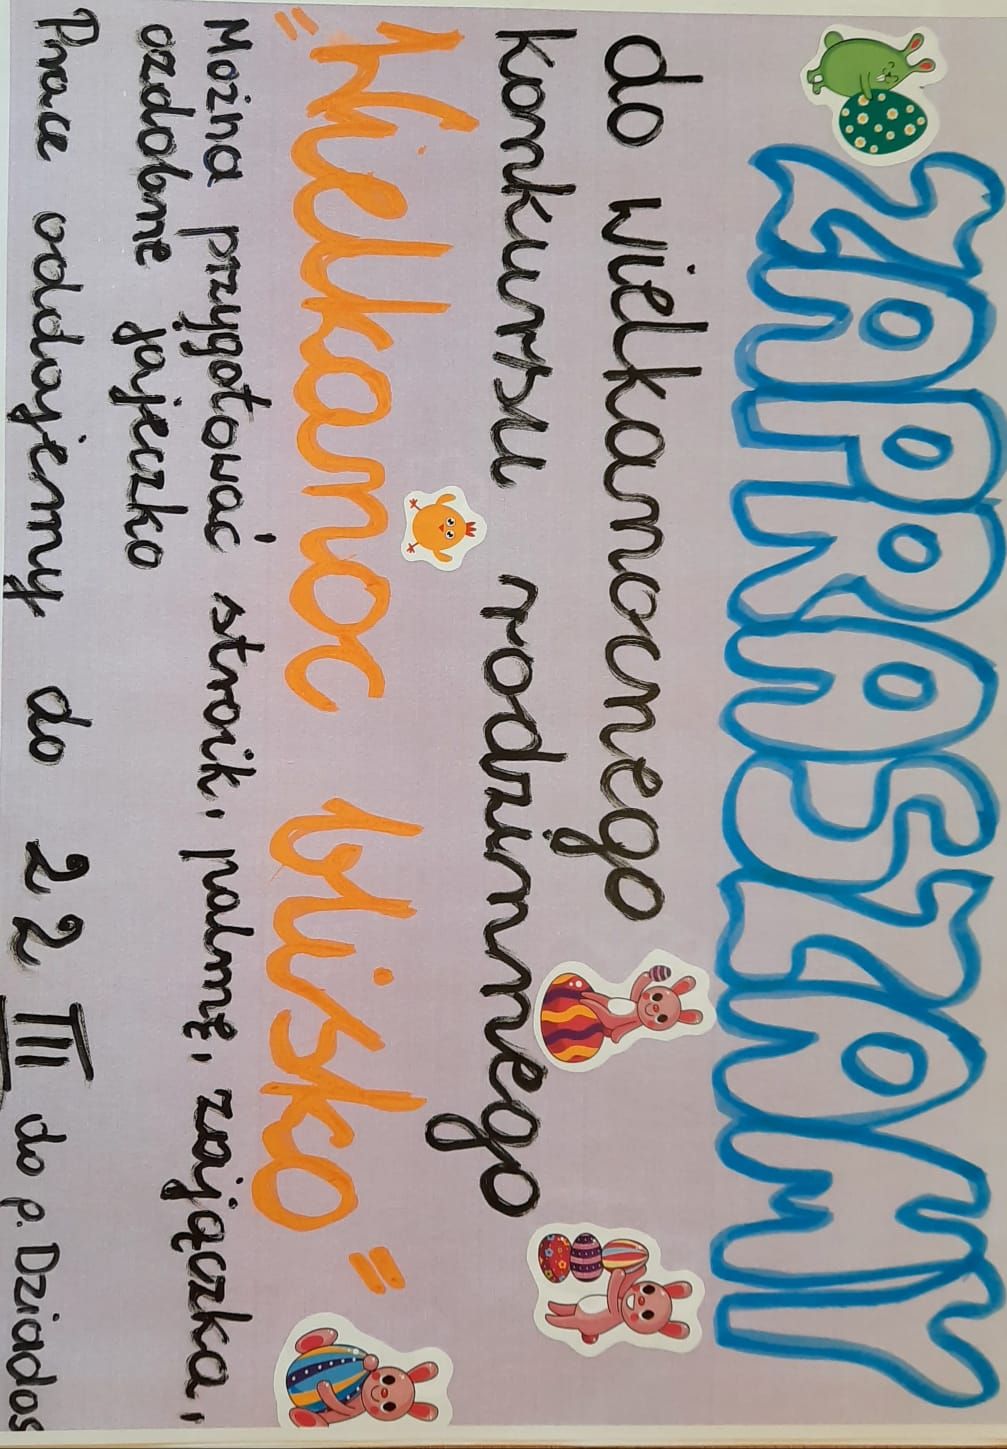 ZAPRASZAMY
do wielkanocnego
konkursu rodzinnego
"Wielkanoc blisko"
Można przygotować stroik, palmę, zajączka,
ozdobne jajeczko
Prace oddajemy do 22 III do p. Dziados